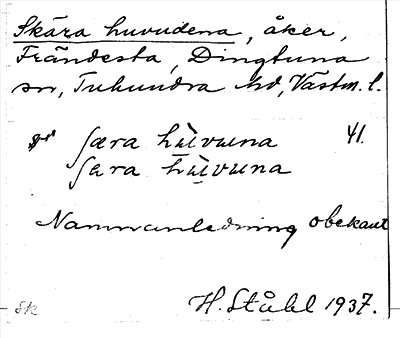 Skära huvudena, åker,
Frändesta, Dingtuna
sn, Tuhundra hd, Västm. l.
ʃæra hùvuna 41.
ʃæra hùvuna
Namnanledning obekant
H. Ståhl 1937.
Sk